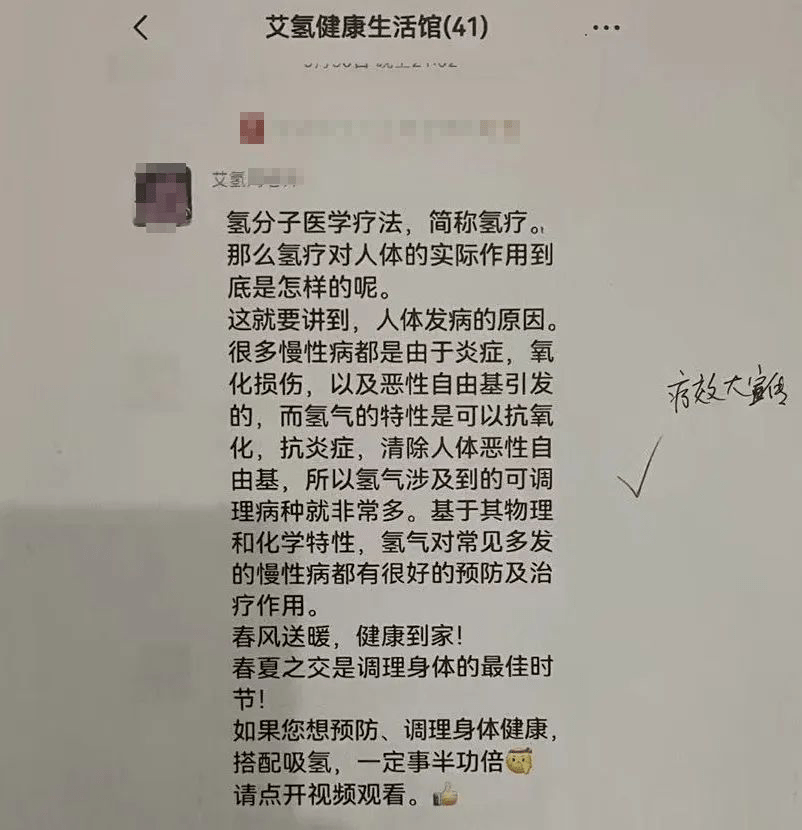 艾氢健康生活馆(41)
艾氢
氢分子医学疗法，简称氢疗。
那么氢疗对人体的实际作用到
底是怎样的呢。
这就要讲到，人体发病的原因。
很多慢性病都是由于炎症，氧
化损伤，以及恶性自由基引发
的，而氢气的特性是可以抗氧
化，抗炎症，清除人体恶性自
由基，所以氢气涉及到的可调
理病种就非常多。基于其物理
和化学特性，氢气对常见多发
的慢性病都有很好的预防及治
疗作用。
春风送暖，健康到家！
春夏之交是调理身体的最佳时
节！
如果您想预防、调理身体健康，
搭配吸氢，一定事半功倍
请点开视频观看。
疗效大宣传